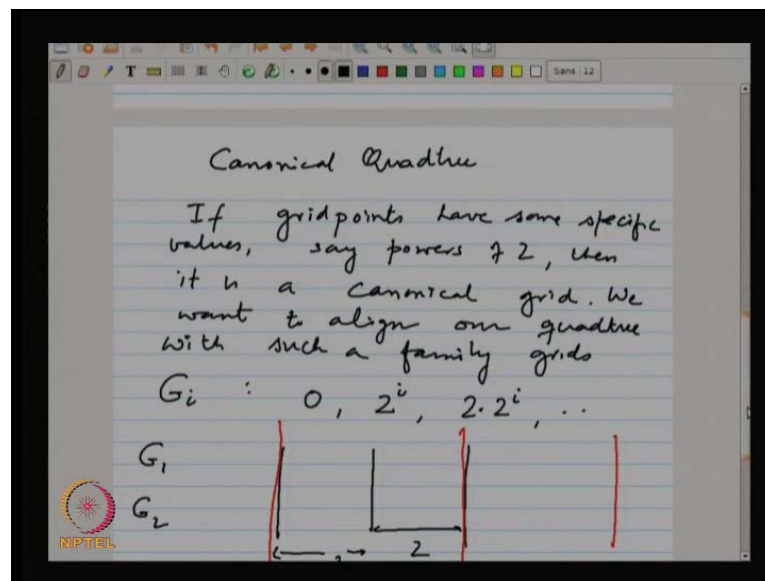 T
Sans 12
Canonical Quadtree
If gridpoints have some specific
values, say powers of 2, then
it is a canonical grid. We
want to align our quadtree
with such a family grids
Gi : 0, 2^i, 2.2^i, ..
G1
G2
2
NPTEL